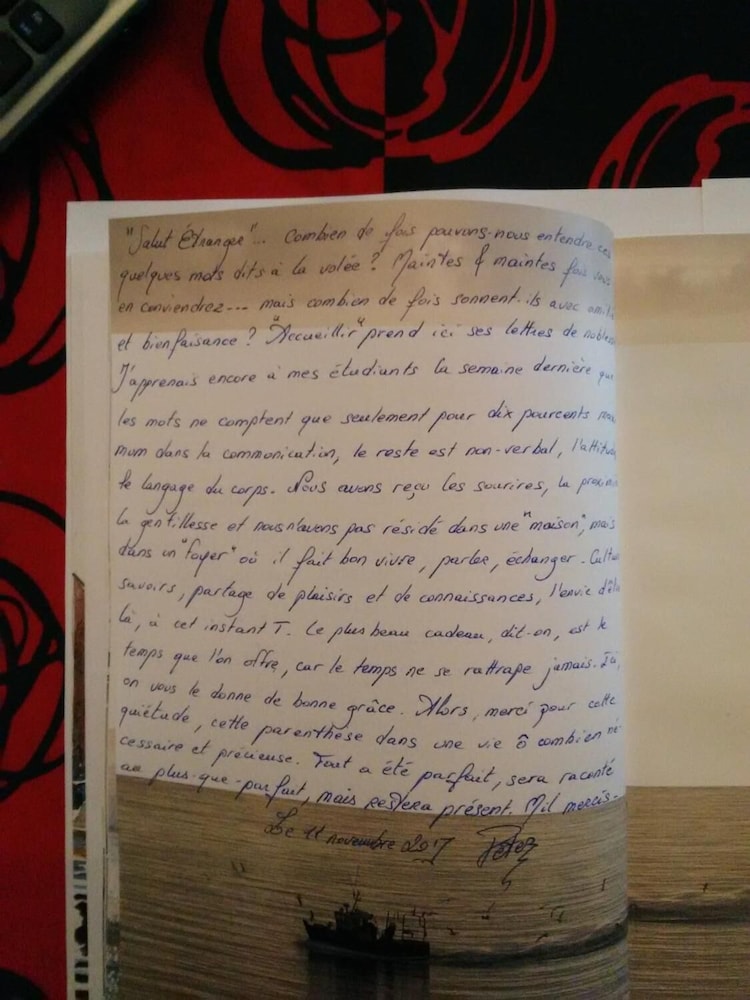 "Salut Étranger"... Combien de fois pouvons-nous entendre ces
quelques mots dits à la volée ? Maintes & maintes fois vous
en conviendrez... mais combien de fois sonnent-ils avec
et bienfaisance ? "Accueillir" prend ici ses lettres de
J'apprenais encore à mes étudiants la semaine dernière que
les mots ne comptent que seulement pour dix pourcents
mum dans la communication, le reste est non-verbal,
le langage du corps. Nous avons reçu les sourires, la
la gentillesse et nous n'avons pas résidé dans une "maison", mais
dans un "foyer" où il fait bon vivre, parler, échanger.
savoirs, partage de plaisirs et de connaissances, l'envie
là, à cet instant T. Le plus beau cadeau, dit-on, est le
temps que l'on offre, car le temps ne se rattrape jamais. Ici,
on vous le donne de bonne grâce. Alors, merci pour cette
quiétude, cette parenthèse dans une vie ô combien né-
cessaire et précieuse. Tout a été parfait, sera raconté
au plus-que-parfait, mais restera présent. Mil mercis-
Le 11 novembre 2017